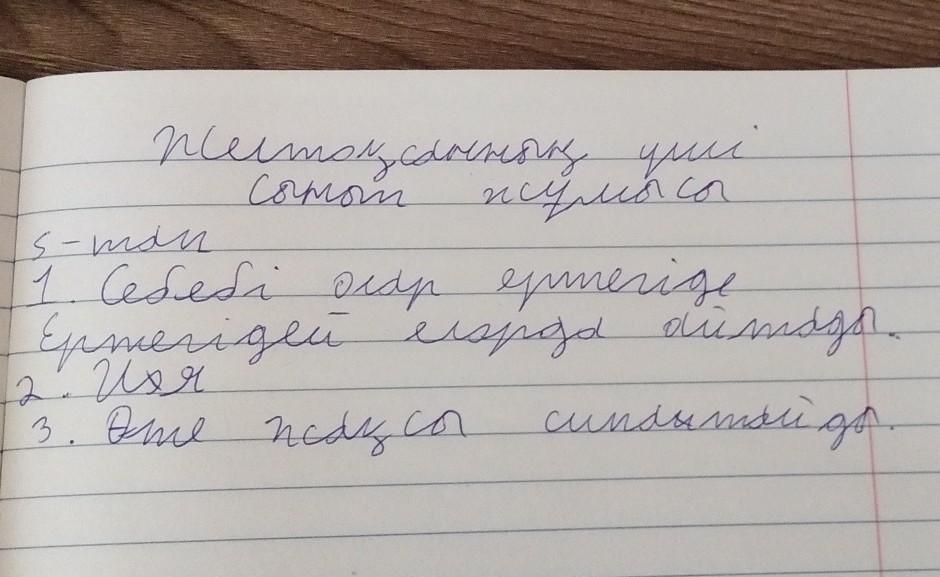 Желтоқсанның үші
Сынып жұмысы
5-тап
1. Себебі олар ертегіде
Ертегідей елорда айтады.
2. Иә
3. Өте жақсы сипаттайды.